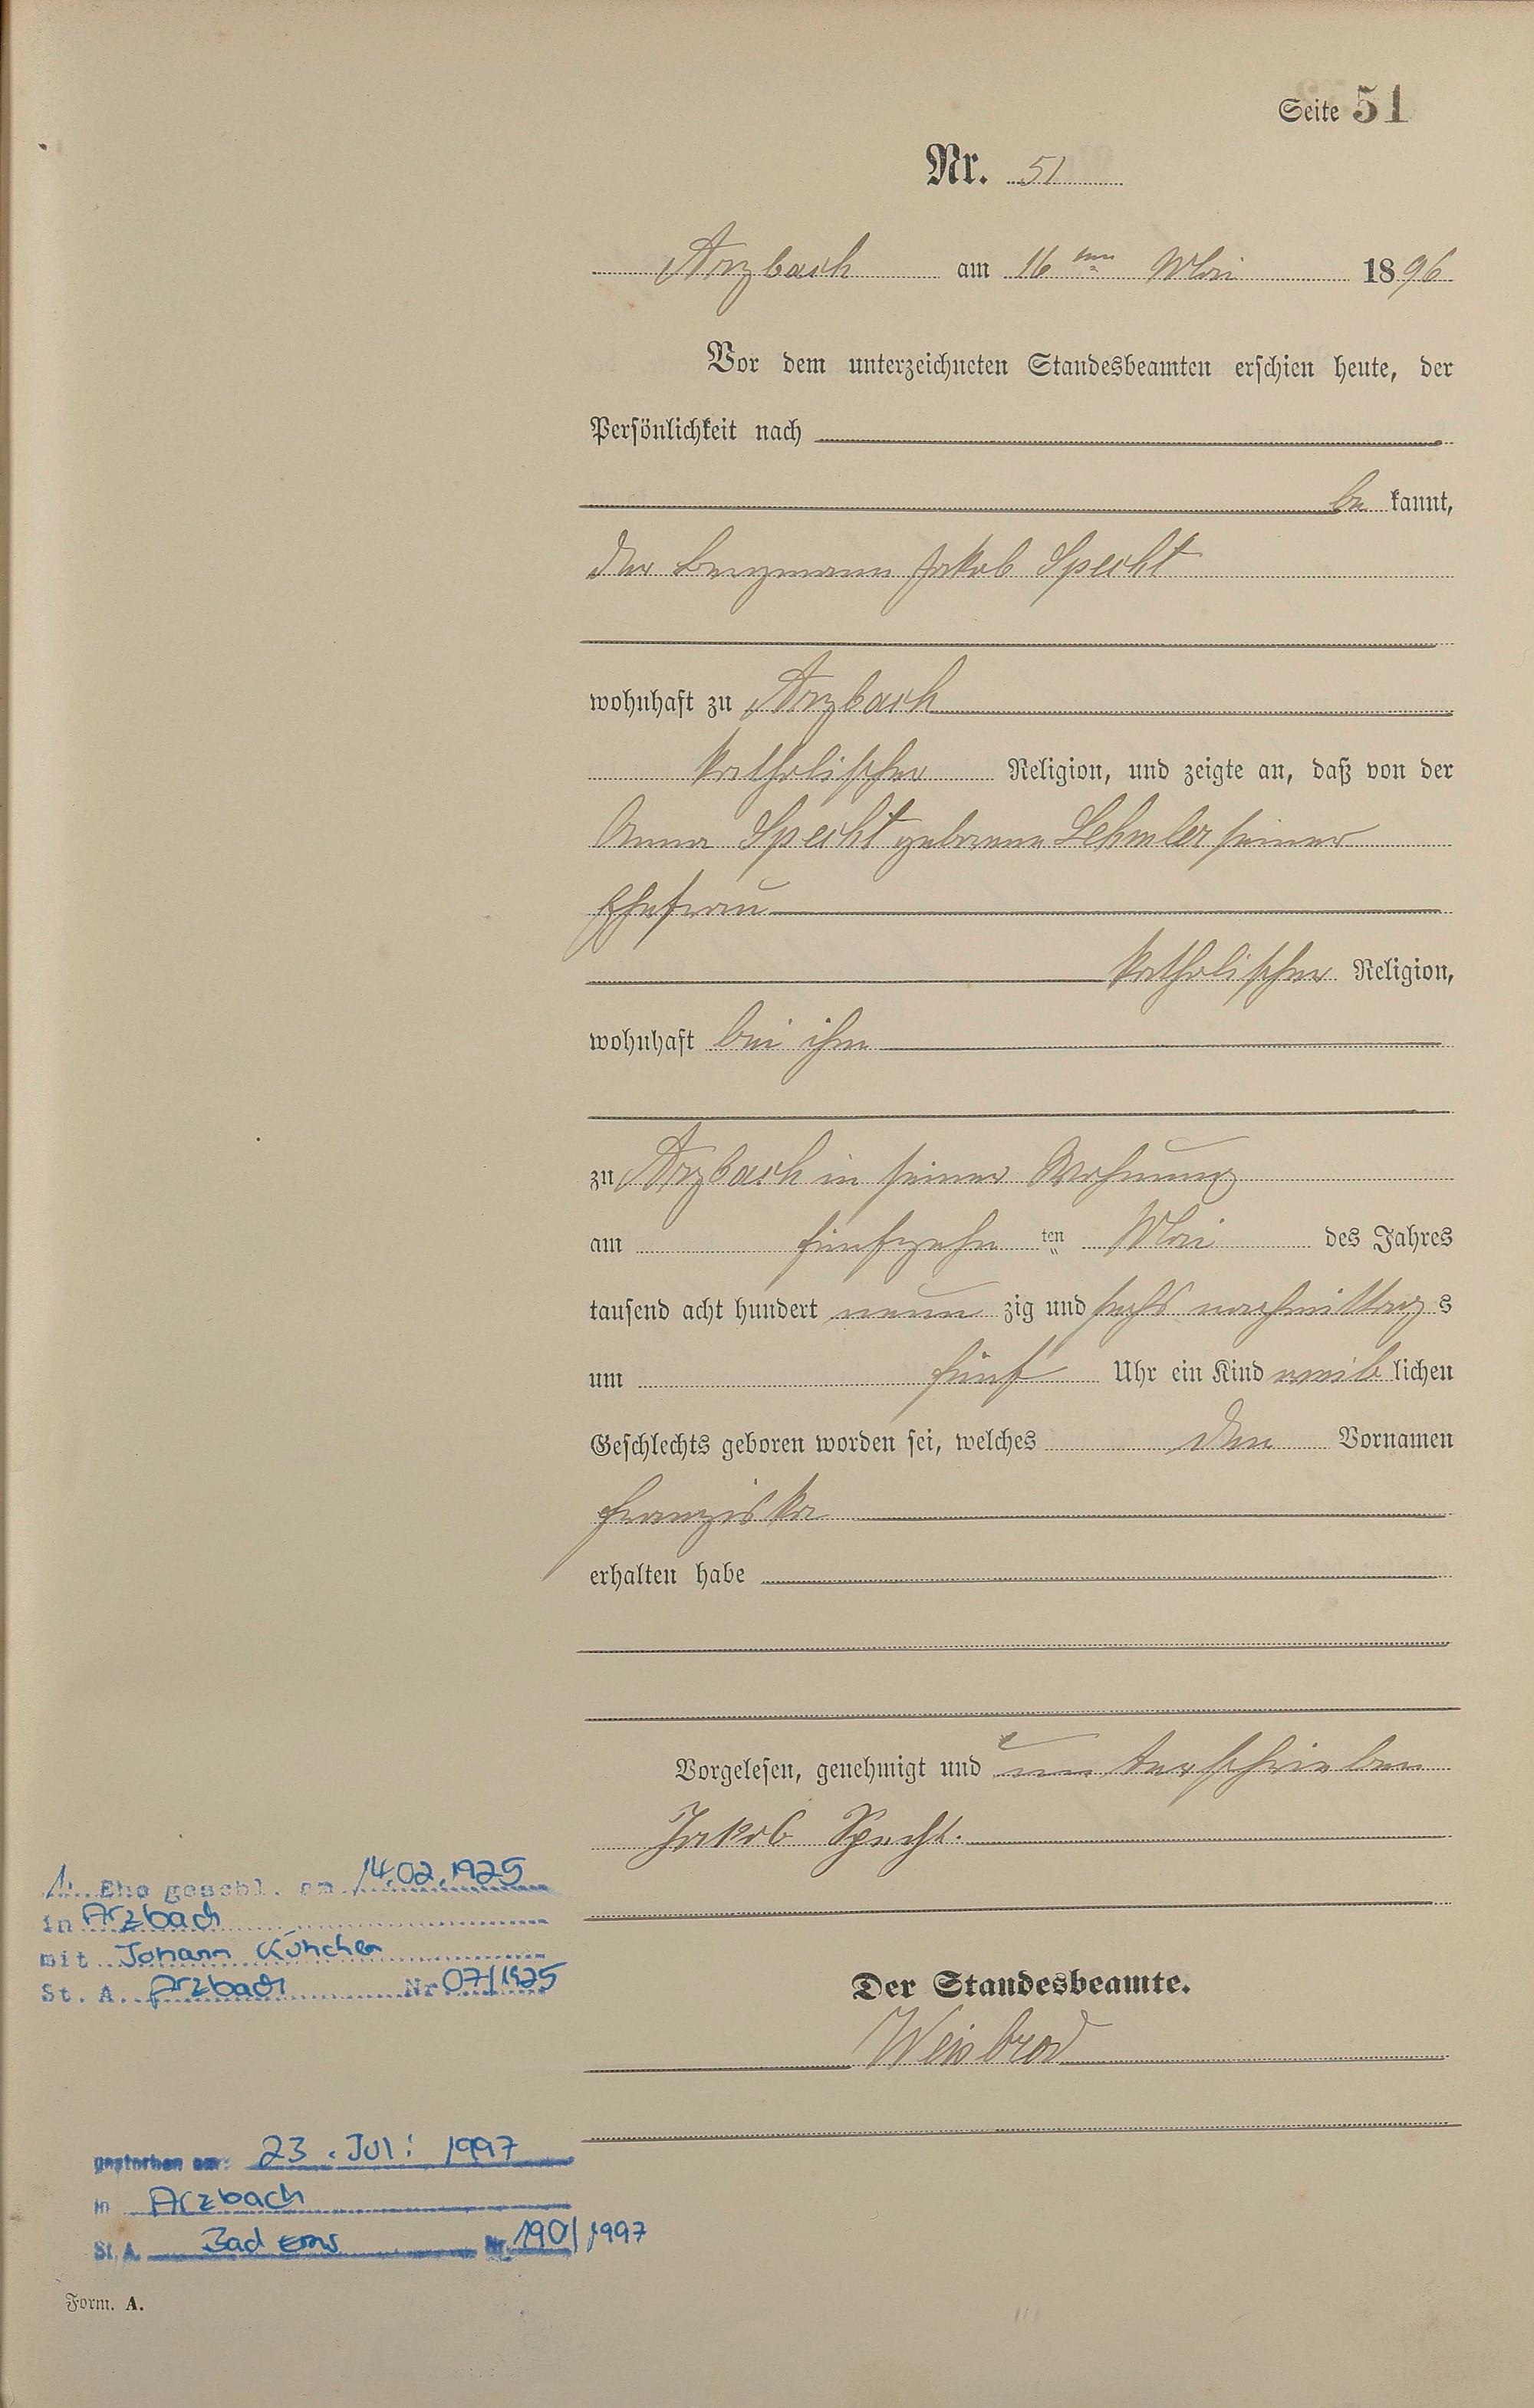 Seite 51
Nr. 51
Arzbach am 16ten Mai 1896
Vor dem unterzeichneten Standesbeamten erschien heute, der
Persönlichkeit nach
be kannt,
der Bergmann Jakob Specht
wohnhaft zu Arzbach
katholischer Religion, und zeigte an, daß von der
Anna Specht geborene Lehmler seiner
Ehefrau
katholischer Religion,
wohnhaft bei ihm
zu Arzbach in seiner Wohnung
am fünfzehn ten Mai des Jahres
tausend acht hundert neun zig und sechs nachmittag s
um fünf Uhr ein Kind weib lichen
Geschlechts geboren worden sei, welches den Vornamen
Franziska
erhalten habe
Vorgelesen, genehmigt und unterschrieben
Jakob Specht.
Der Standesbeamte.
Weisbrod
1. Ehe geschl. am 14.02.1925
in Arzbach
mit Johann
St. A. Arzbach Nr 07/1925
gestorben am: 23. Juli 1997
in Arzbach
St. A. Bad Ems Nr. 190/1997
Form. A.